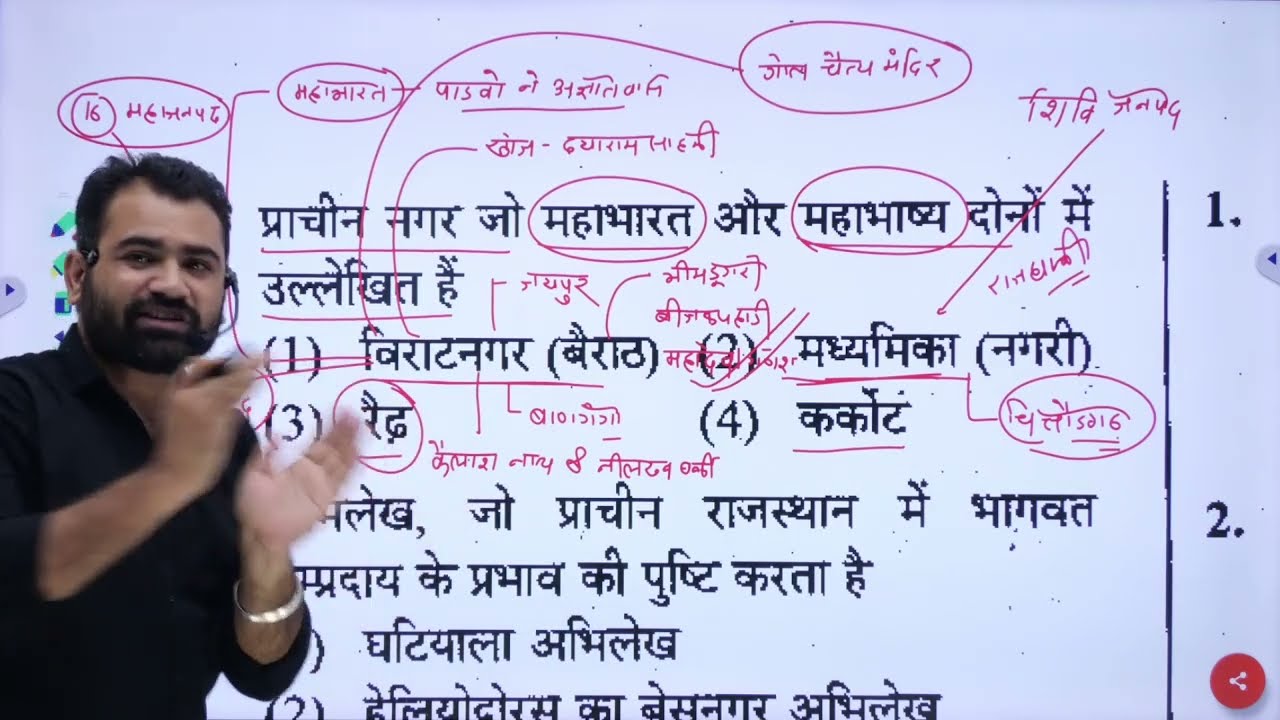 गोल चैत्य मंदिर
16 महाजनपद
महाभारत - पाडवो ने अज्ञातवास
शिवि जनपद
खोज - दयाराम साहनी
प्राचीन नगर जो महाभारत और महाभाष्य दोनों में
1.
उल्लेखित हैं
जयपुर
भीमडूंगरी
राजधानी
बीजक पहाडी
(1) विराटनगर (बैराठ)
(2) मध्यमिका (नगरी)
(3) रैढ़
बाणगंगा
(4) कर्कोट
चित्तौडगढ
कैलाश नाथ & नीलरत्न बनर्जी
लेख, जो प्राचीन राजस्थान में भागवत
2.
म्प्रदाय के प्रभाव की पुष्टि करता है
) घटियाला अभिलेख
(2) हेलियोदोरस का बेसनगर अभिलेख